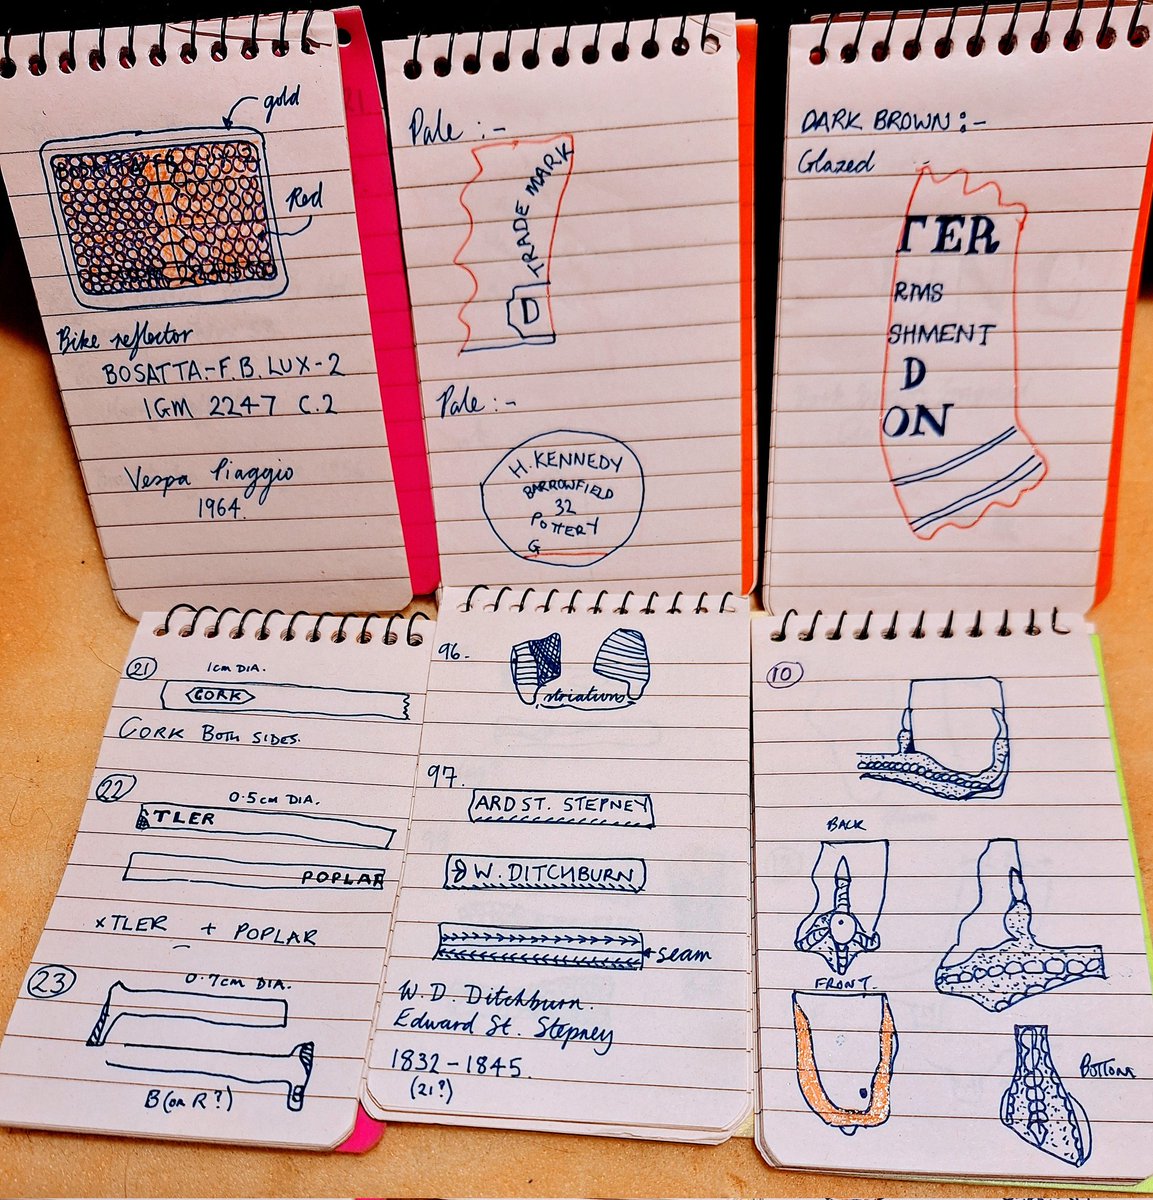 gold
Red
Bike reflector
BOSATTA-F.B. LUX-2
IGM 2247 C.2
Vespa Piaggio
1964.
Pale :-
TRADE MARK
D
Pale :-
H. KENNEDY
BARROWFIELD
32
POTTERY
G
DARK BROWN :-
Glazed
TER
RMS
SHMENT
D
ON
21
1CM DIA.
CORK
CORK BOTH SIDES.
22
0.5CM DIA.
TLER
POPLAR
xTLER + POPLAR
23
0.7CM DIA.
B (OR R?)
96.
striations
97.
ARD ST. STEPNEY
W. DITCHBURN
seam
W. D. Ditchburn.
Edward St. Stepney
1832-1845.
(21?)
10
BACK
FRONT.
BOTTOM